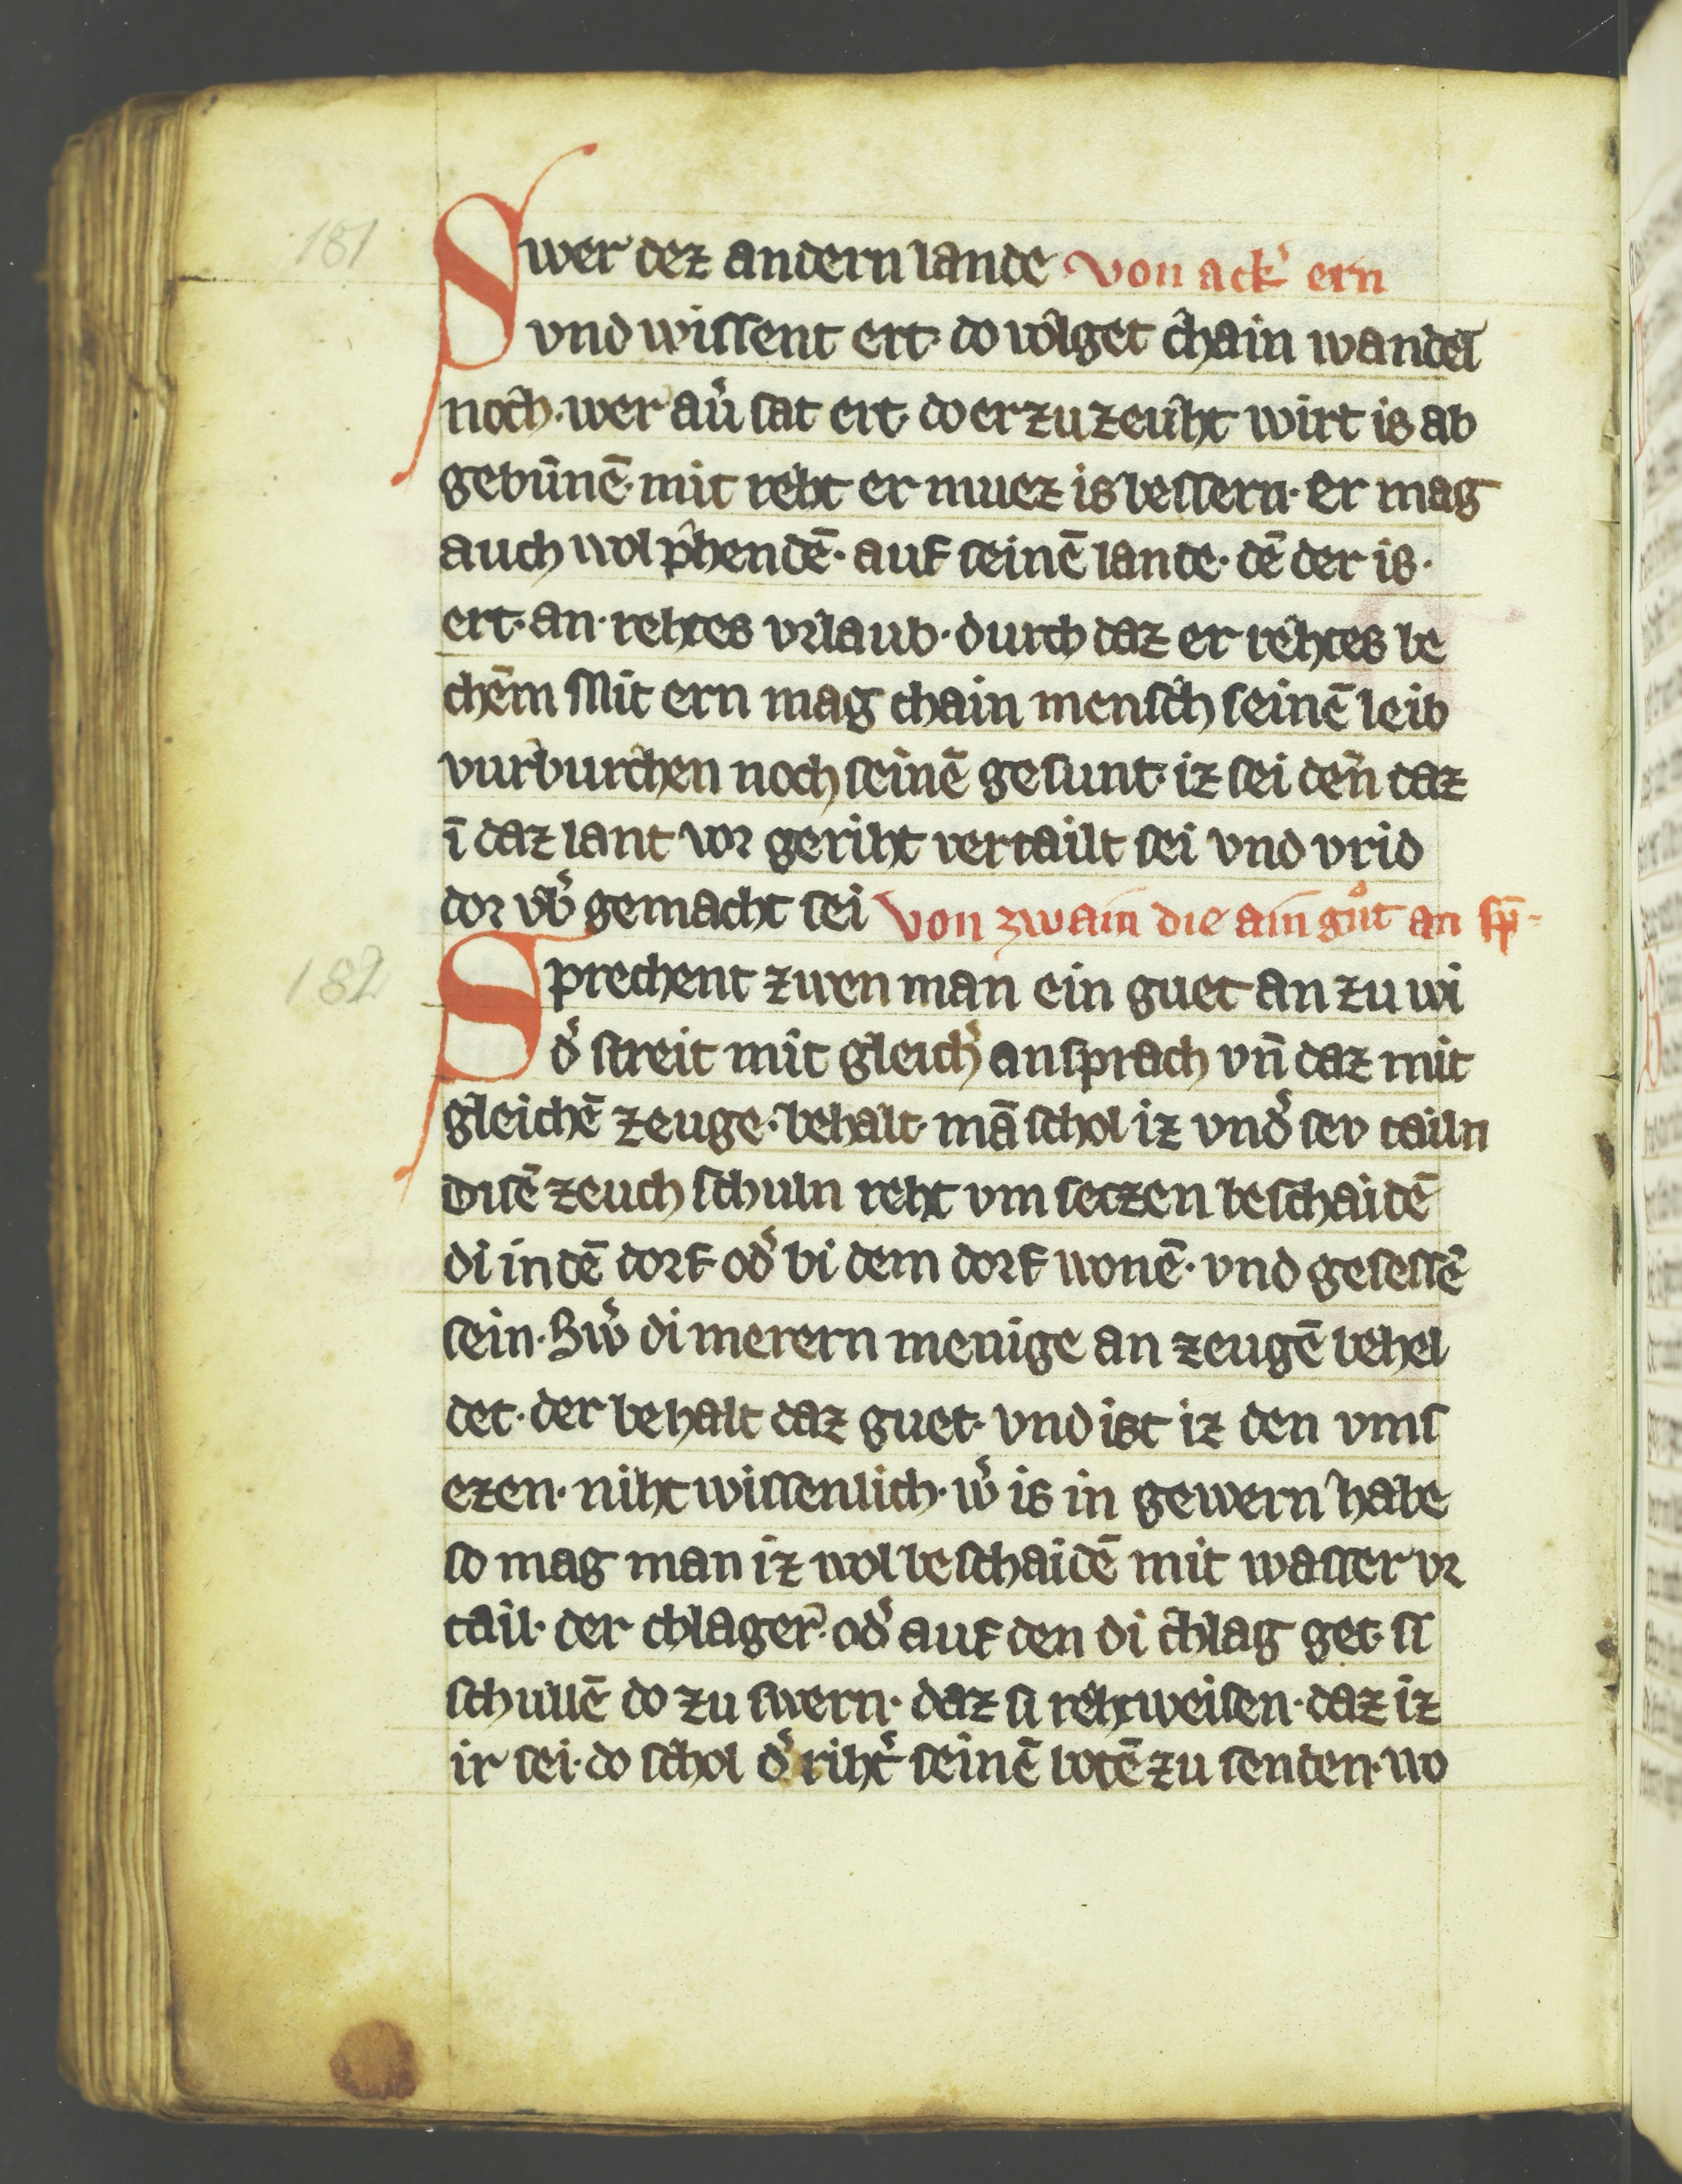 181
Swer dez andern lande von ack' ern
vnd wissent ert· do volget chain wandel
noch· wer au' sat ert· do er zu zeuht wirt is ab
gebūnē· mit reht er muez is bessern· er mag
auch wol phendē· auf seinē lande· dē der is·
ert· an· rehtes vrlaub· durch daz er rehtes be
chēm Mit ern mag chain mensch seinē leib
vurburchen noch seinē gesunt· iz sei den daz
ī daz lant vor geriht vertailt sei vnd vrid
dor vb' gemacht sei von zwain die ain gůt an sp̄·
182
Sprechent zwen man ein guet an zu wi
d' streit mit gleich' ansprach vn̄ daz mit
gleichē zeuge· behalt· mā schol iz vnd' sev tailn
disē zeuch schuln reht vm seczen beschaidē
di in dē dorf· od' bi dem dorf wonē· vnd gesessē
sein· Sw' di merern menige an zeugē behel
det· der behalt daz guet· vnd ist iz den vms
ezen· niht wissenlich· w' is in gewern habe
so mag man iz wol beschaidē mit wasser vr
tail· der chlager· od' auf den di chlag get· si
schullē do zu swern· daz si reht weisen· daz iz
ir sei· do schol d' riht' seinē botē zu senden· wo